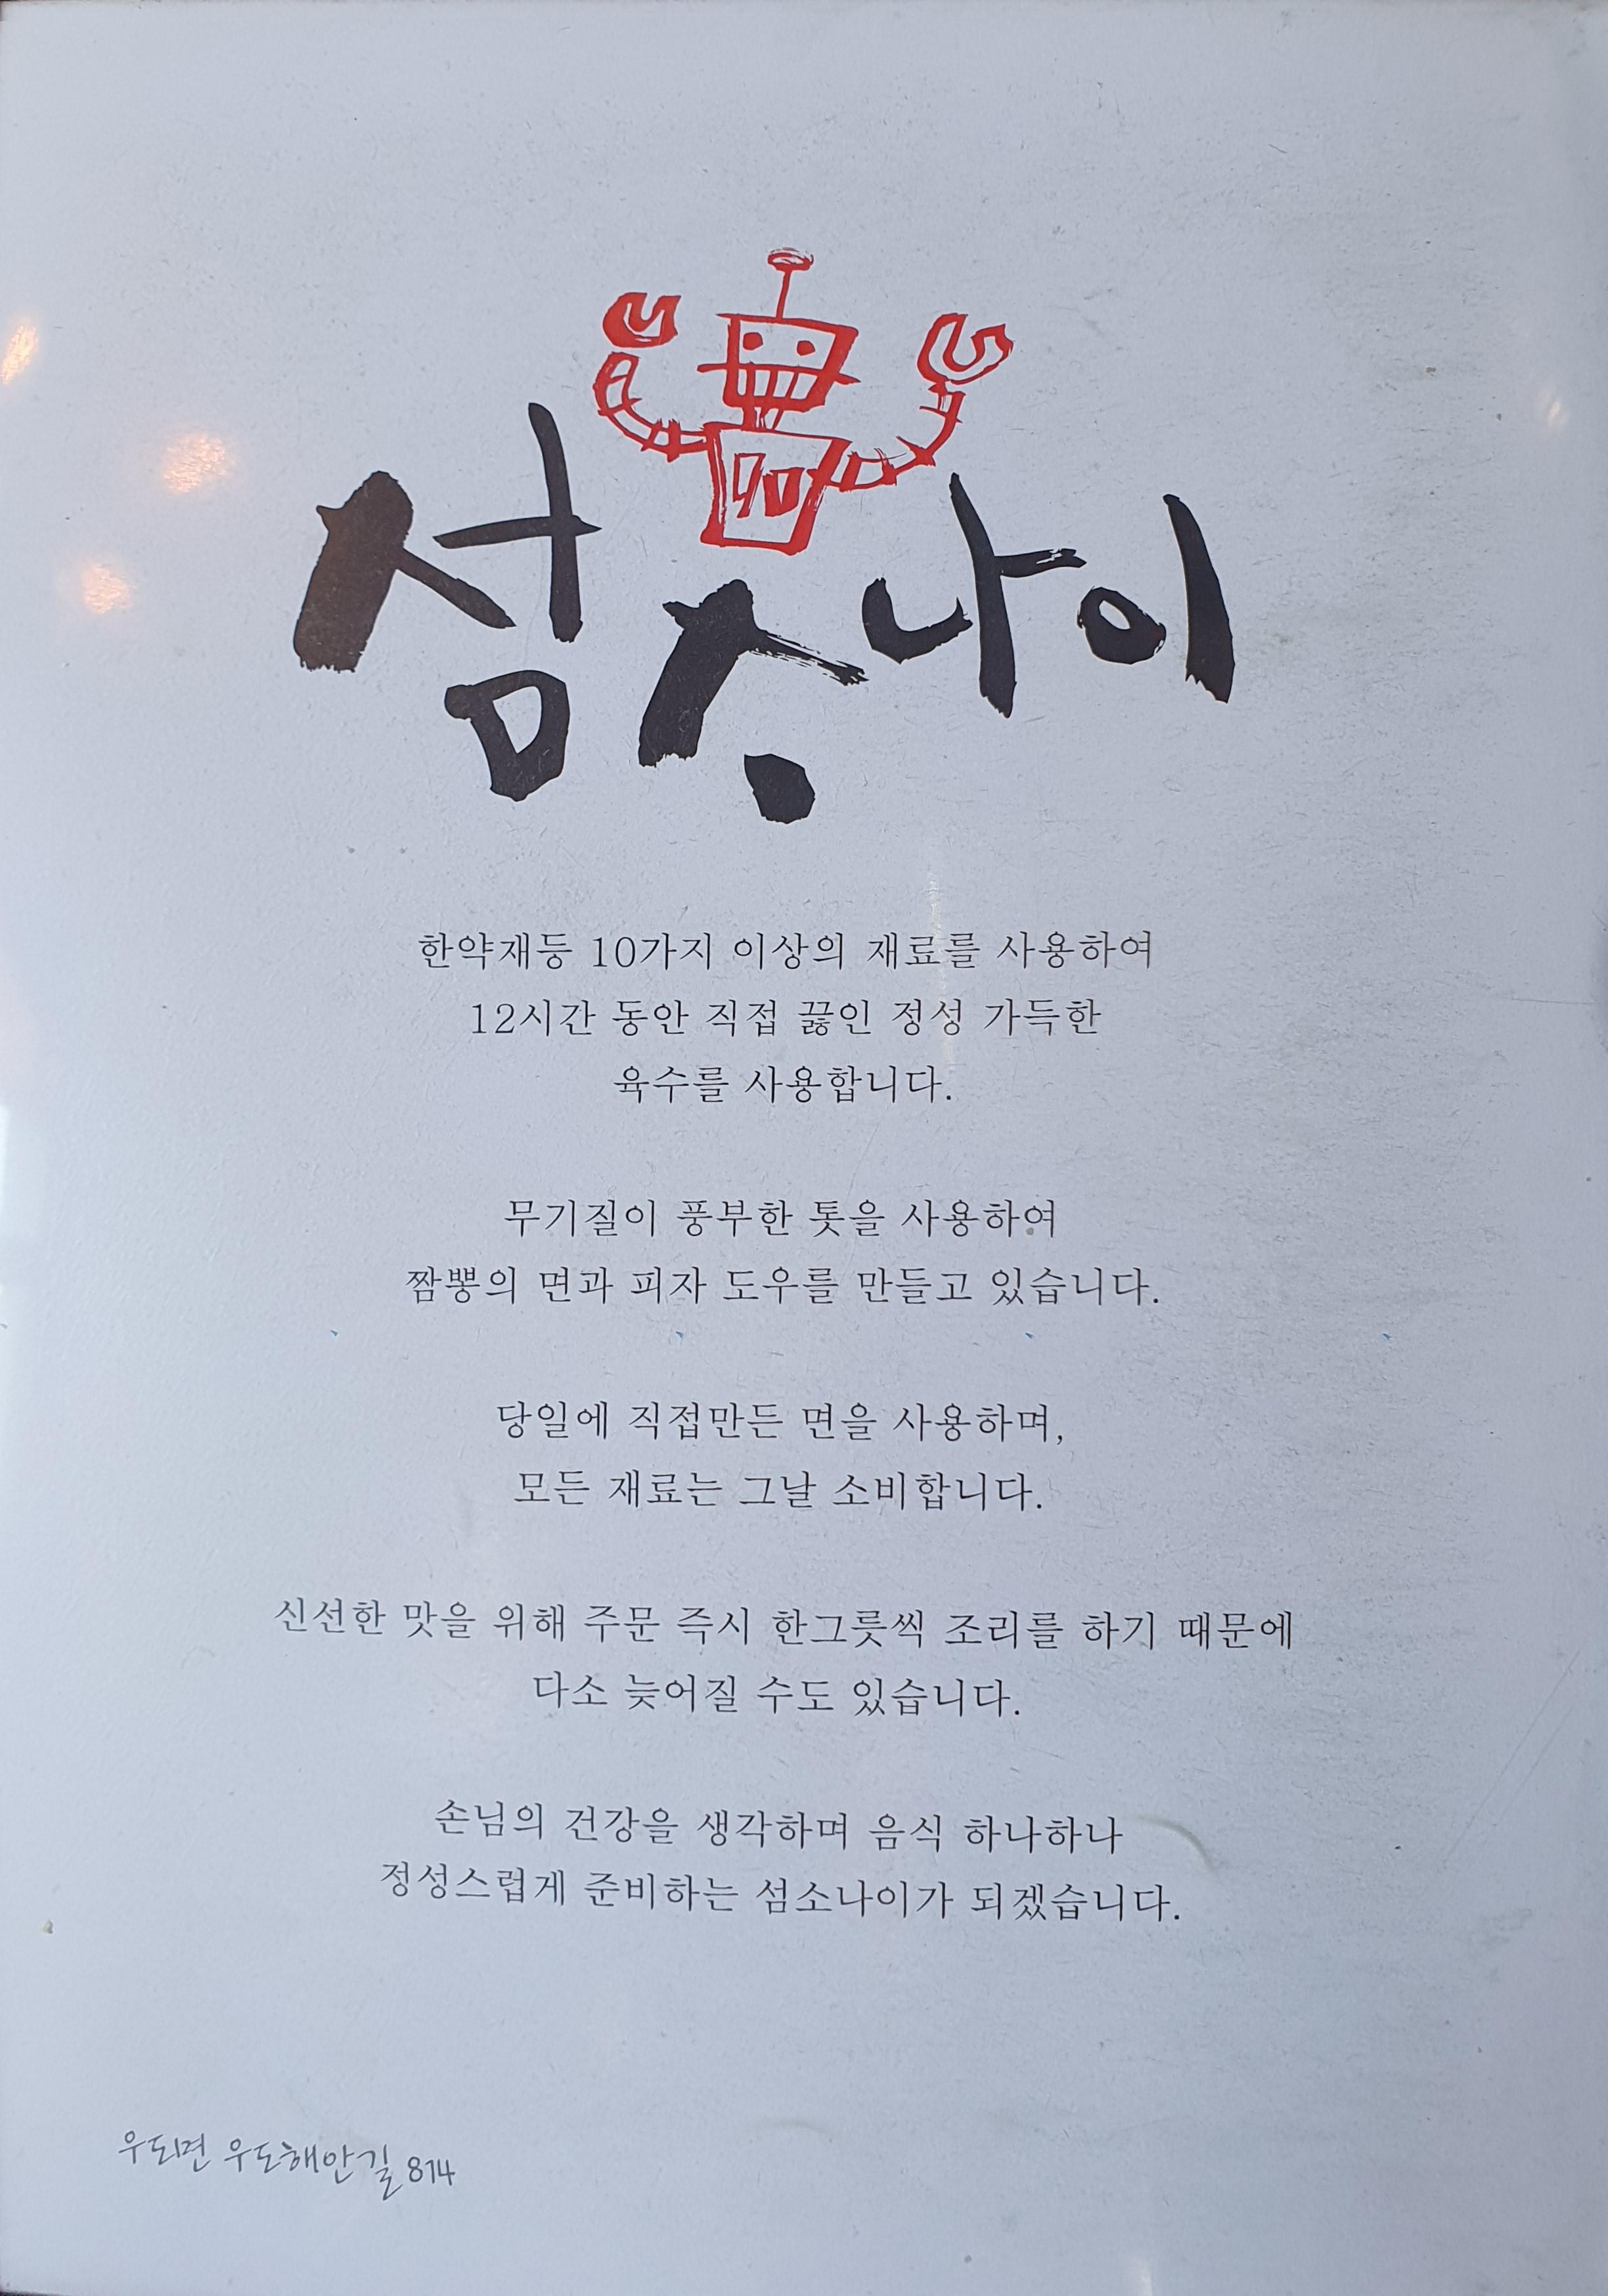 섬소나이
한약재등 10가지 이상의 재료를 사용하여
12시간 동안 직접 끓인 정성 가득한
육수를 사용합니다.
무기질이 풍부한 톳을 사용하여
짬뽕의 면과 피자 도우를 만들고 있습니다.
당일에 직접만든 면을 사용하며,
모든 재료는 그날 소비합니다.
신선한 맛을 위해 주문 즉시 한그릇씩 조리를 하기 때문에
다소 늦어질 수도 있습니다.
손님의 건강을 생각하며 음식 하나하나
정성스럽게 준비하는 섬소나이가 되겠습니다.
우도면 우도해안길 814